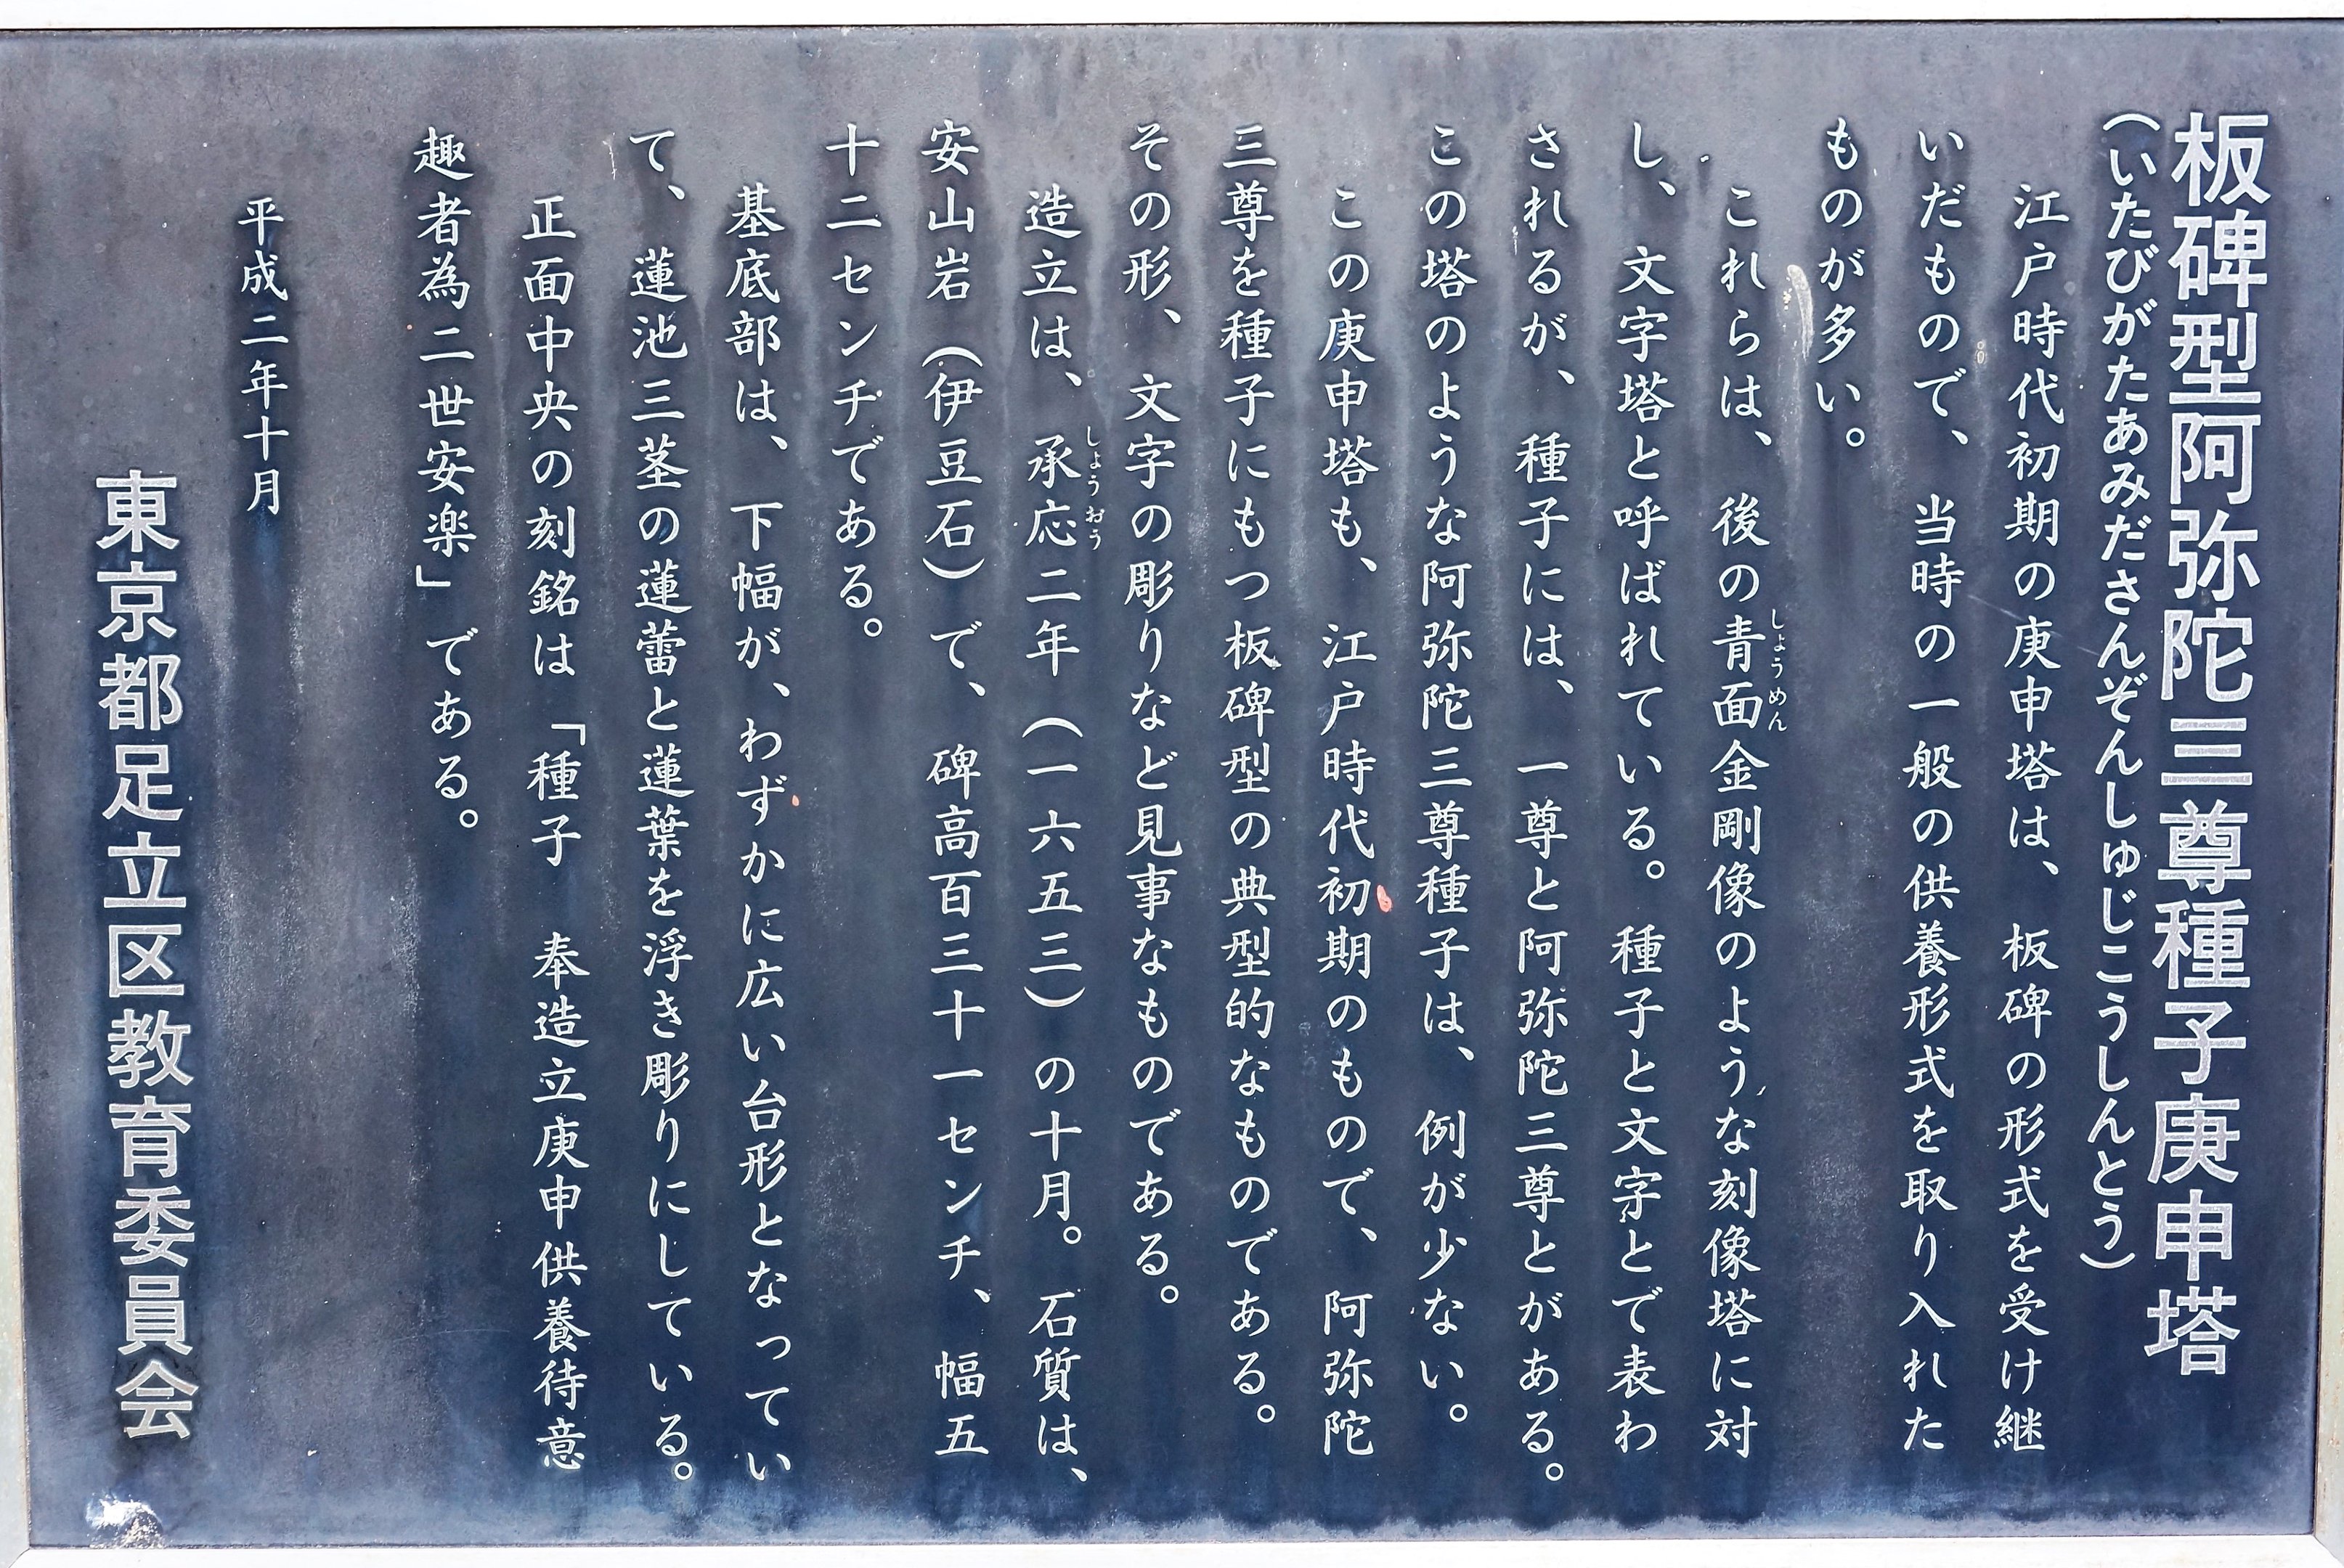 板碑型阿弥陀三尊種子庚申塔
（いたびがたあみださんぞんしゅじこうしんとう）
江戸時代初期の庚申塔は、板碑の形式を受け継
いだもので、当時の一般の供養形式を取り入れた
ものが多い。
これらは、後の青面金剛像のような刻像塔に対
しょうめん
し、文字塔と呼ばれている。種子と文字とで表わ
されるが、種子には、一尊と阿弥陀三尊とがある。
この塔のような阿弥陀三尊種子は、例が少ない。
この庚申塔も、江戸時代初期のもので、阿弥陀
三尊を種子にもつ板碑型の典型的なものである。
その形、文字の彫りなど見事なものである。
造立は、承応二年（一六五三）の十月。石質は、
しょうおう
安山岩（伊豆石）で、碑高百三十一センチ、幅五
十二センチである。
基底部は、下幅が、わずかに広い台形となってい
て、蓮池三茎の蓮蕾と蓮葉を浮き彫りにしている。
正面中央の刻銘は「種子　奉造立庚申供養待意
趣者為二世安楽」である。
平成二年十月
東京都足立区教育委員会